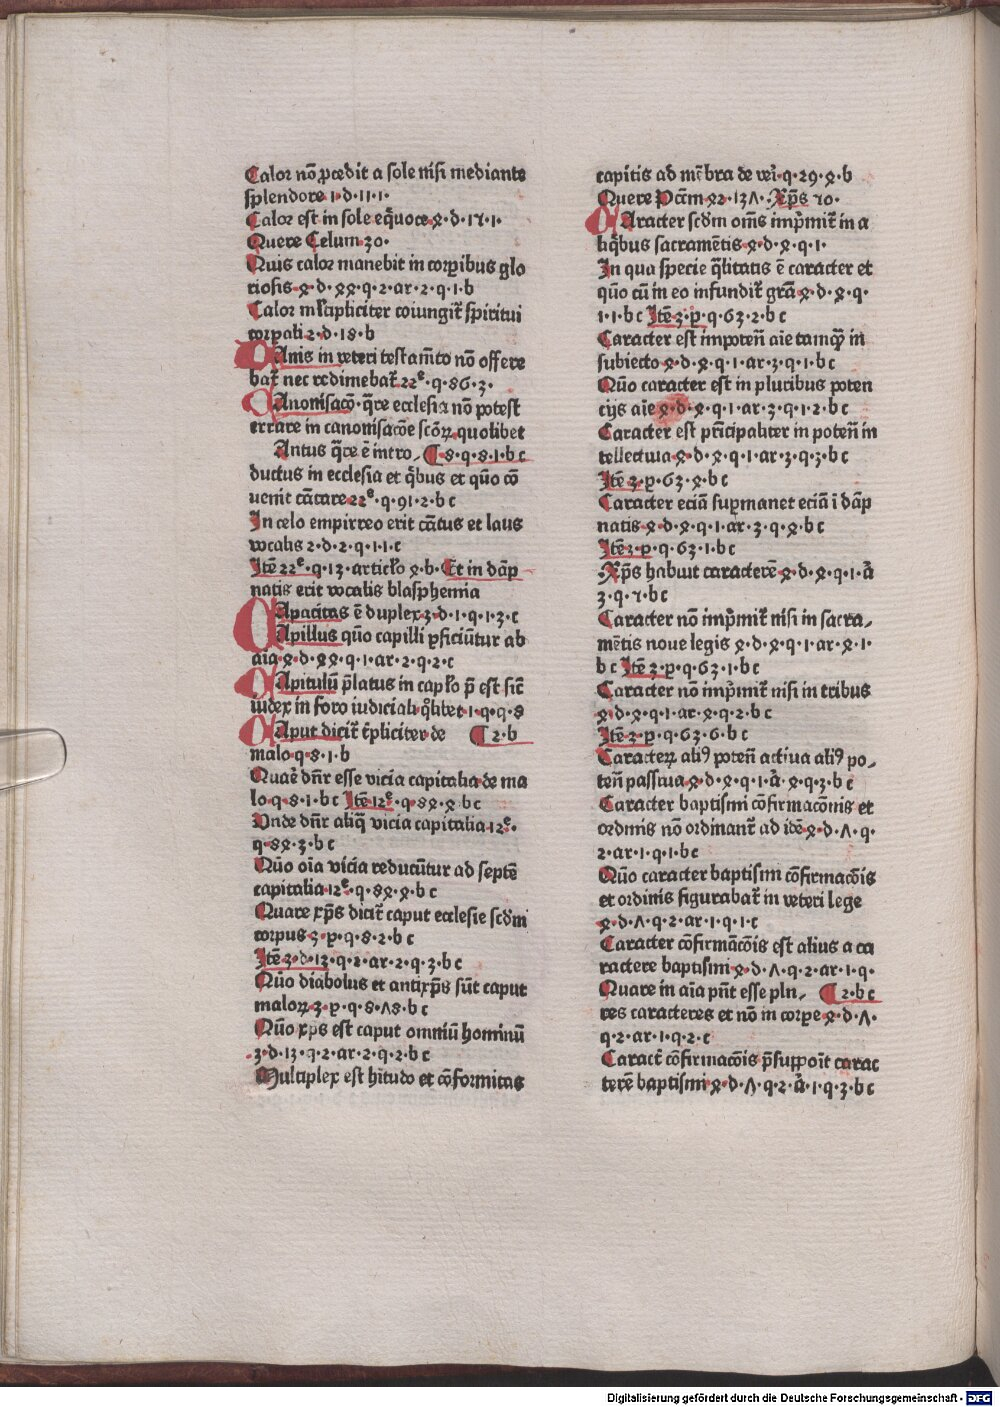 Calor nō ꝓcedit a sole nisi mediante
splendore ı·d·ıı·ı·
Calor est in sole eq̄uoce ꝝ·d·ı7·ı·
Quere Celum 30·
Quis calor manebit in corꝑibus glo
riosis 4·d·44·q·2·ar·2·q·1·b
Calor ml̄tipliciter coiungit᷑ spiritui
corꝑali 2·d·18·b
CAnis in veteri testam̄to nō offere
bat᷑ nec redimebat᷑ 22ͤ·q·86·3·
CAnonisacō·q̄re ecclesia nō potest
errare in canonisacōe scōꝝ quolibet
Antus q̄re ē intro⸗ ¶ 8·q·8·1·b c
ductus in ecclesia et q̄bus et quō cō
uenit cātare 22ͤ·q·91·2·b c
In celo empirreo erit cātus et laus
vocalis 2·d·2·q·1·1·c
Itē 22ͤ·q·13·articło 4·b·Et in dāp
natis erit vocalis blasphemia
CApacitas ē duplex 3·d·1·q·1·3·c
CApillus quō capilli ꝑficiūtur ab
aīa 4·d·44·q·1·ar·2·q·2·c
CApitulū p̄latus in capło p̄ est sic̄
iudex in foro iudiciali q̊libet 1·q·q·8
CAput dicit᷑ t̄pliciter de ¶ 2·b
malo q·8·1·b
Quarē dn̄r esse vicia capitalia de ma
lo q·8·1·b c Itē 12ͤ·q·84·4·b c
Vnde dn̄r aliq̄ vicia capitalia 12ͤ·
q·84·3·b c
Quō oīa vicia reducūtur ad septē
capitalia 12ͤ·q·84·4·b c
Quare xp̄s dicit᷑ caput ecclesie scd̄m
corpus 3·p·q·8·2·b c
Itē 3·d·13·q·2·ar·2·q·3·b c
Quō diabolus et antixp̄s sūt caput
maloꝝ 3·p·q·8·78·b c
Quō xp̄s est caput omniū hominū
3·d·13·q·2·ar·2·q·2·b c
Multiplex est hītudo et cōformitas
capitis ad mēbra de veī·q·29·4·b
Quere Pc̄cm 42·137·Xp̄s 70·
CAracter scd̄m om̄s imp̄mit᷑ in a
liq̄bus sacramētis 4·d·4·q·1·
In qua specie q̄litatis ē caracter et
quō cū in eo infundit᷑ gr̄a 4·d·4·q·
1·1·b c Itē 3·p·q·63·2·b c
Caracter est impoten̄ aīe tamq̄ꝫ in
subiecto 4·d·4·q·1·ar·3·q·1·b c
Quō caracter est in pluribus poten
cijs aīe 4·d·4·q·1·ar·3·q·1·2·b c
Caracter est prīcipaliter in poten̄ in
tellectiua 4·d·4·q·1·ar·3·q·3·b c
Itē 3·p·63·4·b c
Caracter eciā suꝑmanet eciā ī dāp
natis 4·d·4·q·1·ar·3·q·4·b c
Itē 3·p·q·63·1·b c
Xp̄s habuit caracterē 4·d·4·q·1·ā
3·q·7·b c
Caracter nō imp̄mit᷑ nisi in sacra⸗
mētis noue legis 4·d·4·q·1·ar·4·1·
b c Itē 3·p·q·63·1·b c
Caracter nō imp̄mit᷑ nisi in tribus
4·d·4·q·1·ar·4·q·2·b c
Itē 3·p·q·63·6·b c
Caracterꝝ aliꝰ poten̄ actiua aliꝰ po⸗
ten̄ passiua 4·d·4·q·1·ā·4·q·3·b c
Caracter baptismi cōfirmacōnis et
ordinis nō ordinant᷑ ad idē 4·d·7·q·
2·ar·1·q·1·b c
Quō caracter baptismi cōfirmacōis
et ordinis figurabat᷑ in veteri lege
4·d·7·q·2·ar·1·q·1·c
Caracter cōfirmācōis est alius a ca
ractere baptismi 4·d·7·q·2·ar·1·q·
Quare in aīa pn̄t esse pln⸗ ¶ 2·b c
res caracteres et nō in corꝑe 4·d·7·
q·2·ar·1·q·2·c
Caract᷑ cōfirmacōis p̄suppoīt carac
terē baptismi 4·d·7·q·2·ā·1·q·3·b c
Digitalisierung gefördert durch die Deutsche Forschungsgemeinschaft - DFG